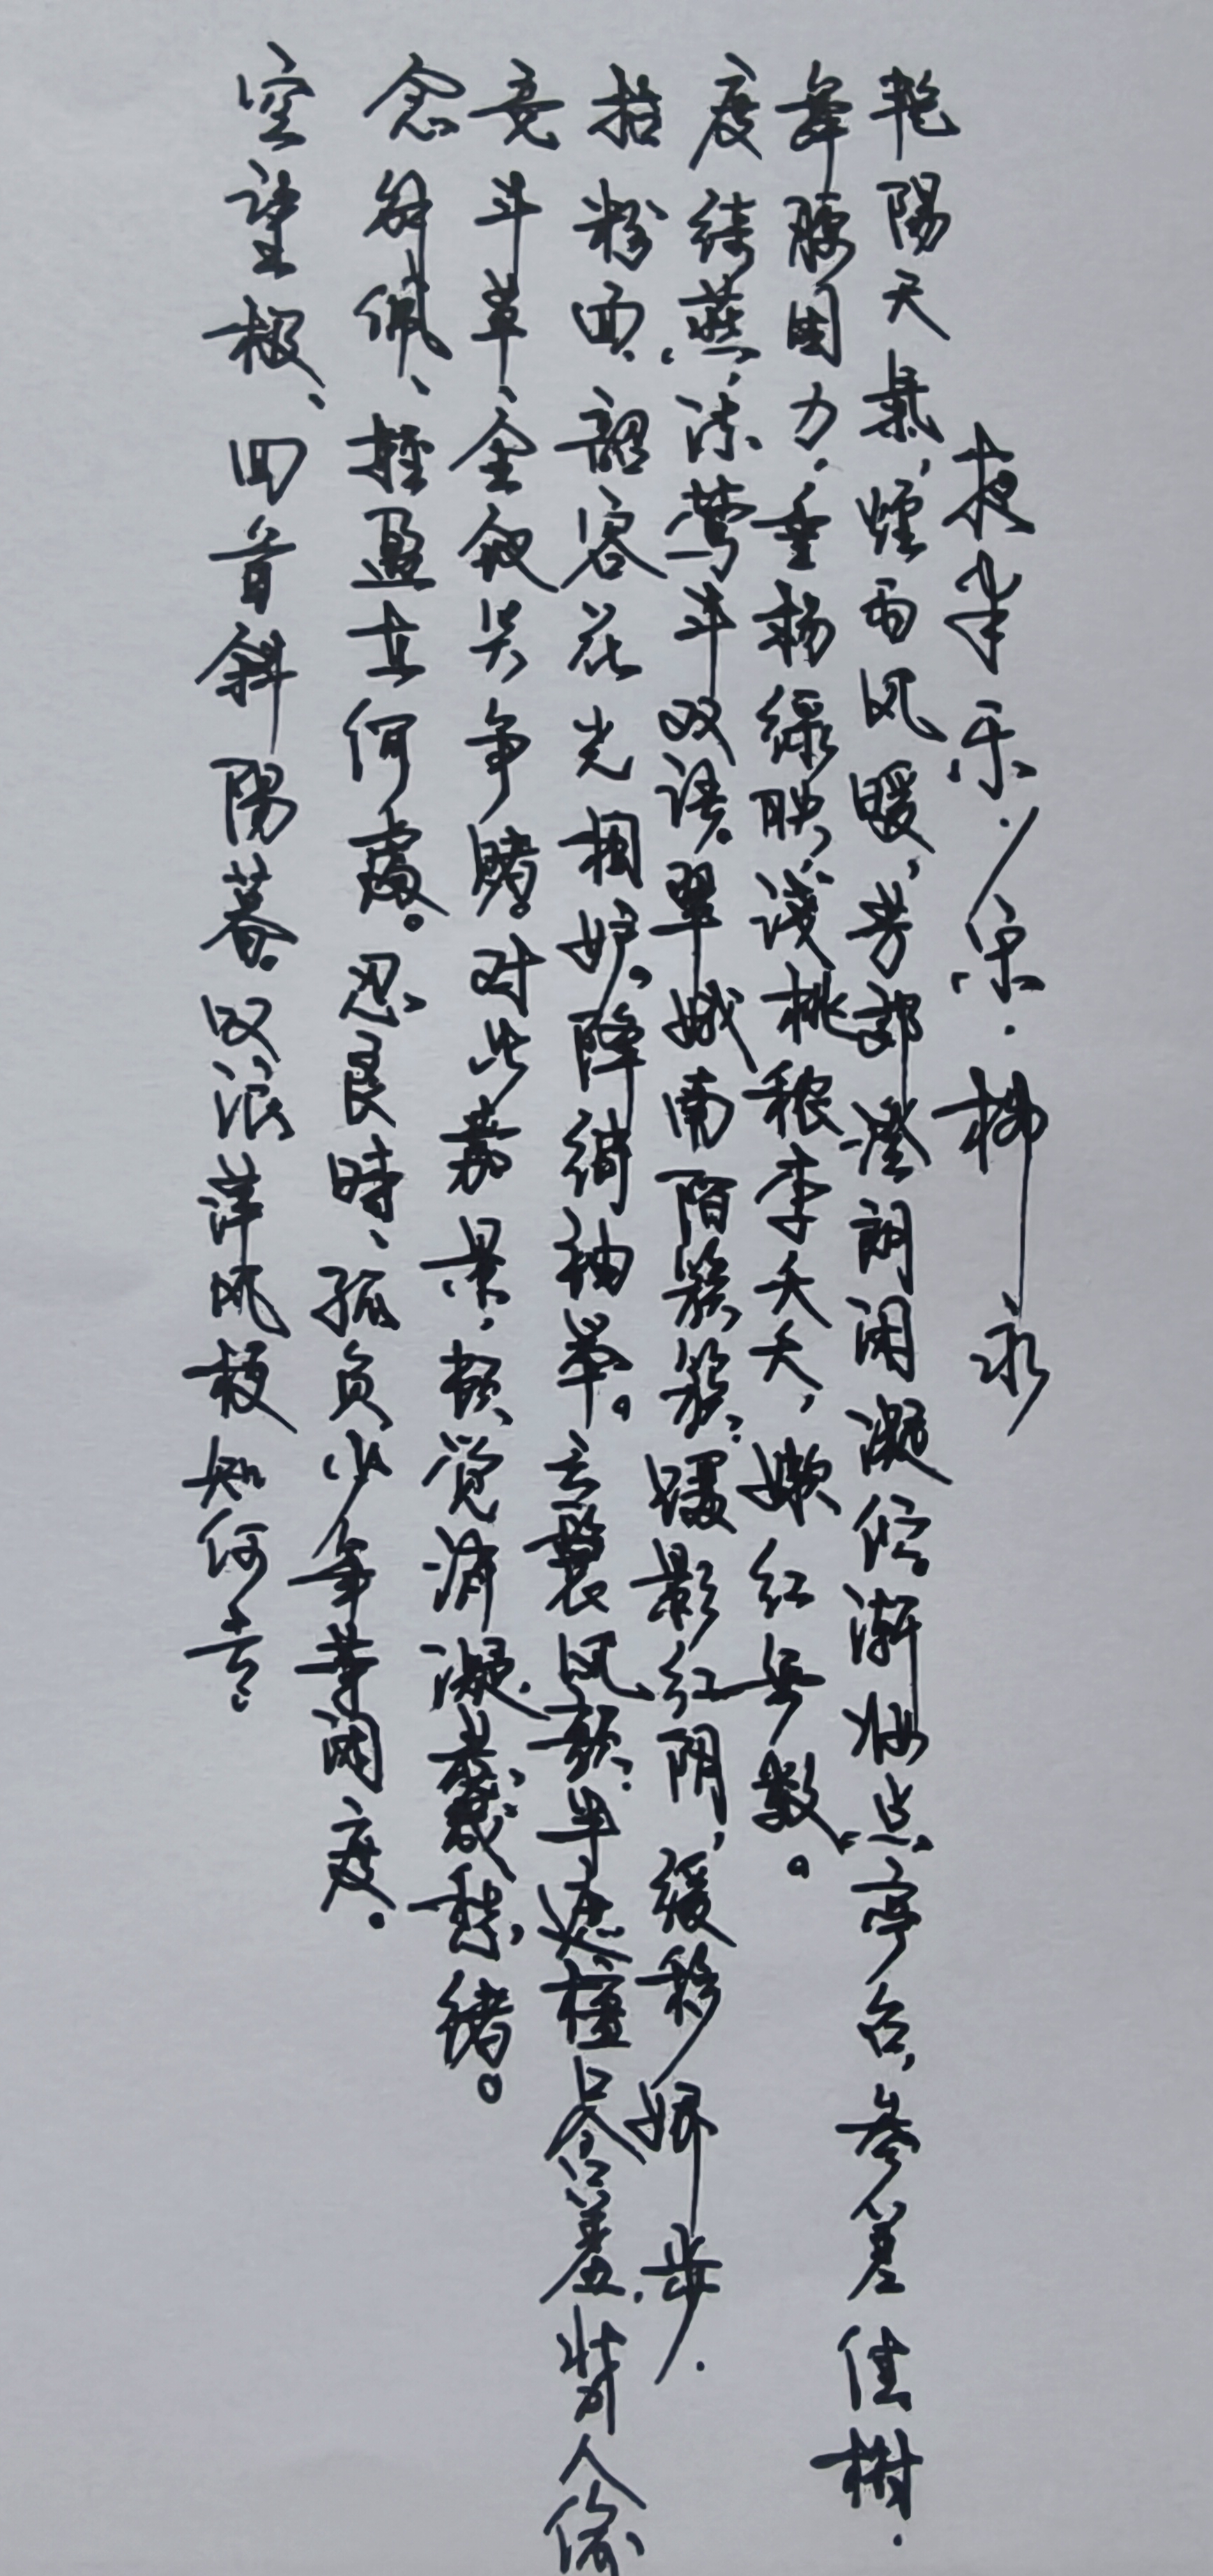 夜半乐·/宋·柳永
艳陽天氣,煙雨风暖,芳郊澄朗闲凝伫。渐妆点亭台,参差佳樹.
舞腰困力.垂杨緑映,浅桃秾李夭夭,嫩红無数。
度绮燕、流莺斗双语.翠娥南陌簇簇,蹑影红阴,缓移娇步.
抬粉面.韶容花光相妒.降绡袖举。云鬟风颤.半遮檀口含羞.背人偷
竞斗草、金钗笑争赌。对此嘉景,顿觉消凝.惹成愁绪。
念解佩、轻盈在何處。忍良時、孤负少年等闲度.
空望极、回首斜陽暮.叹浪萍风梗知何去.